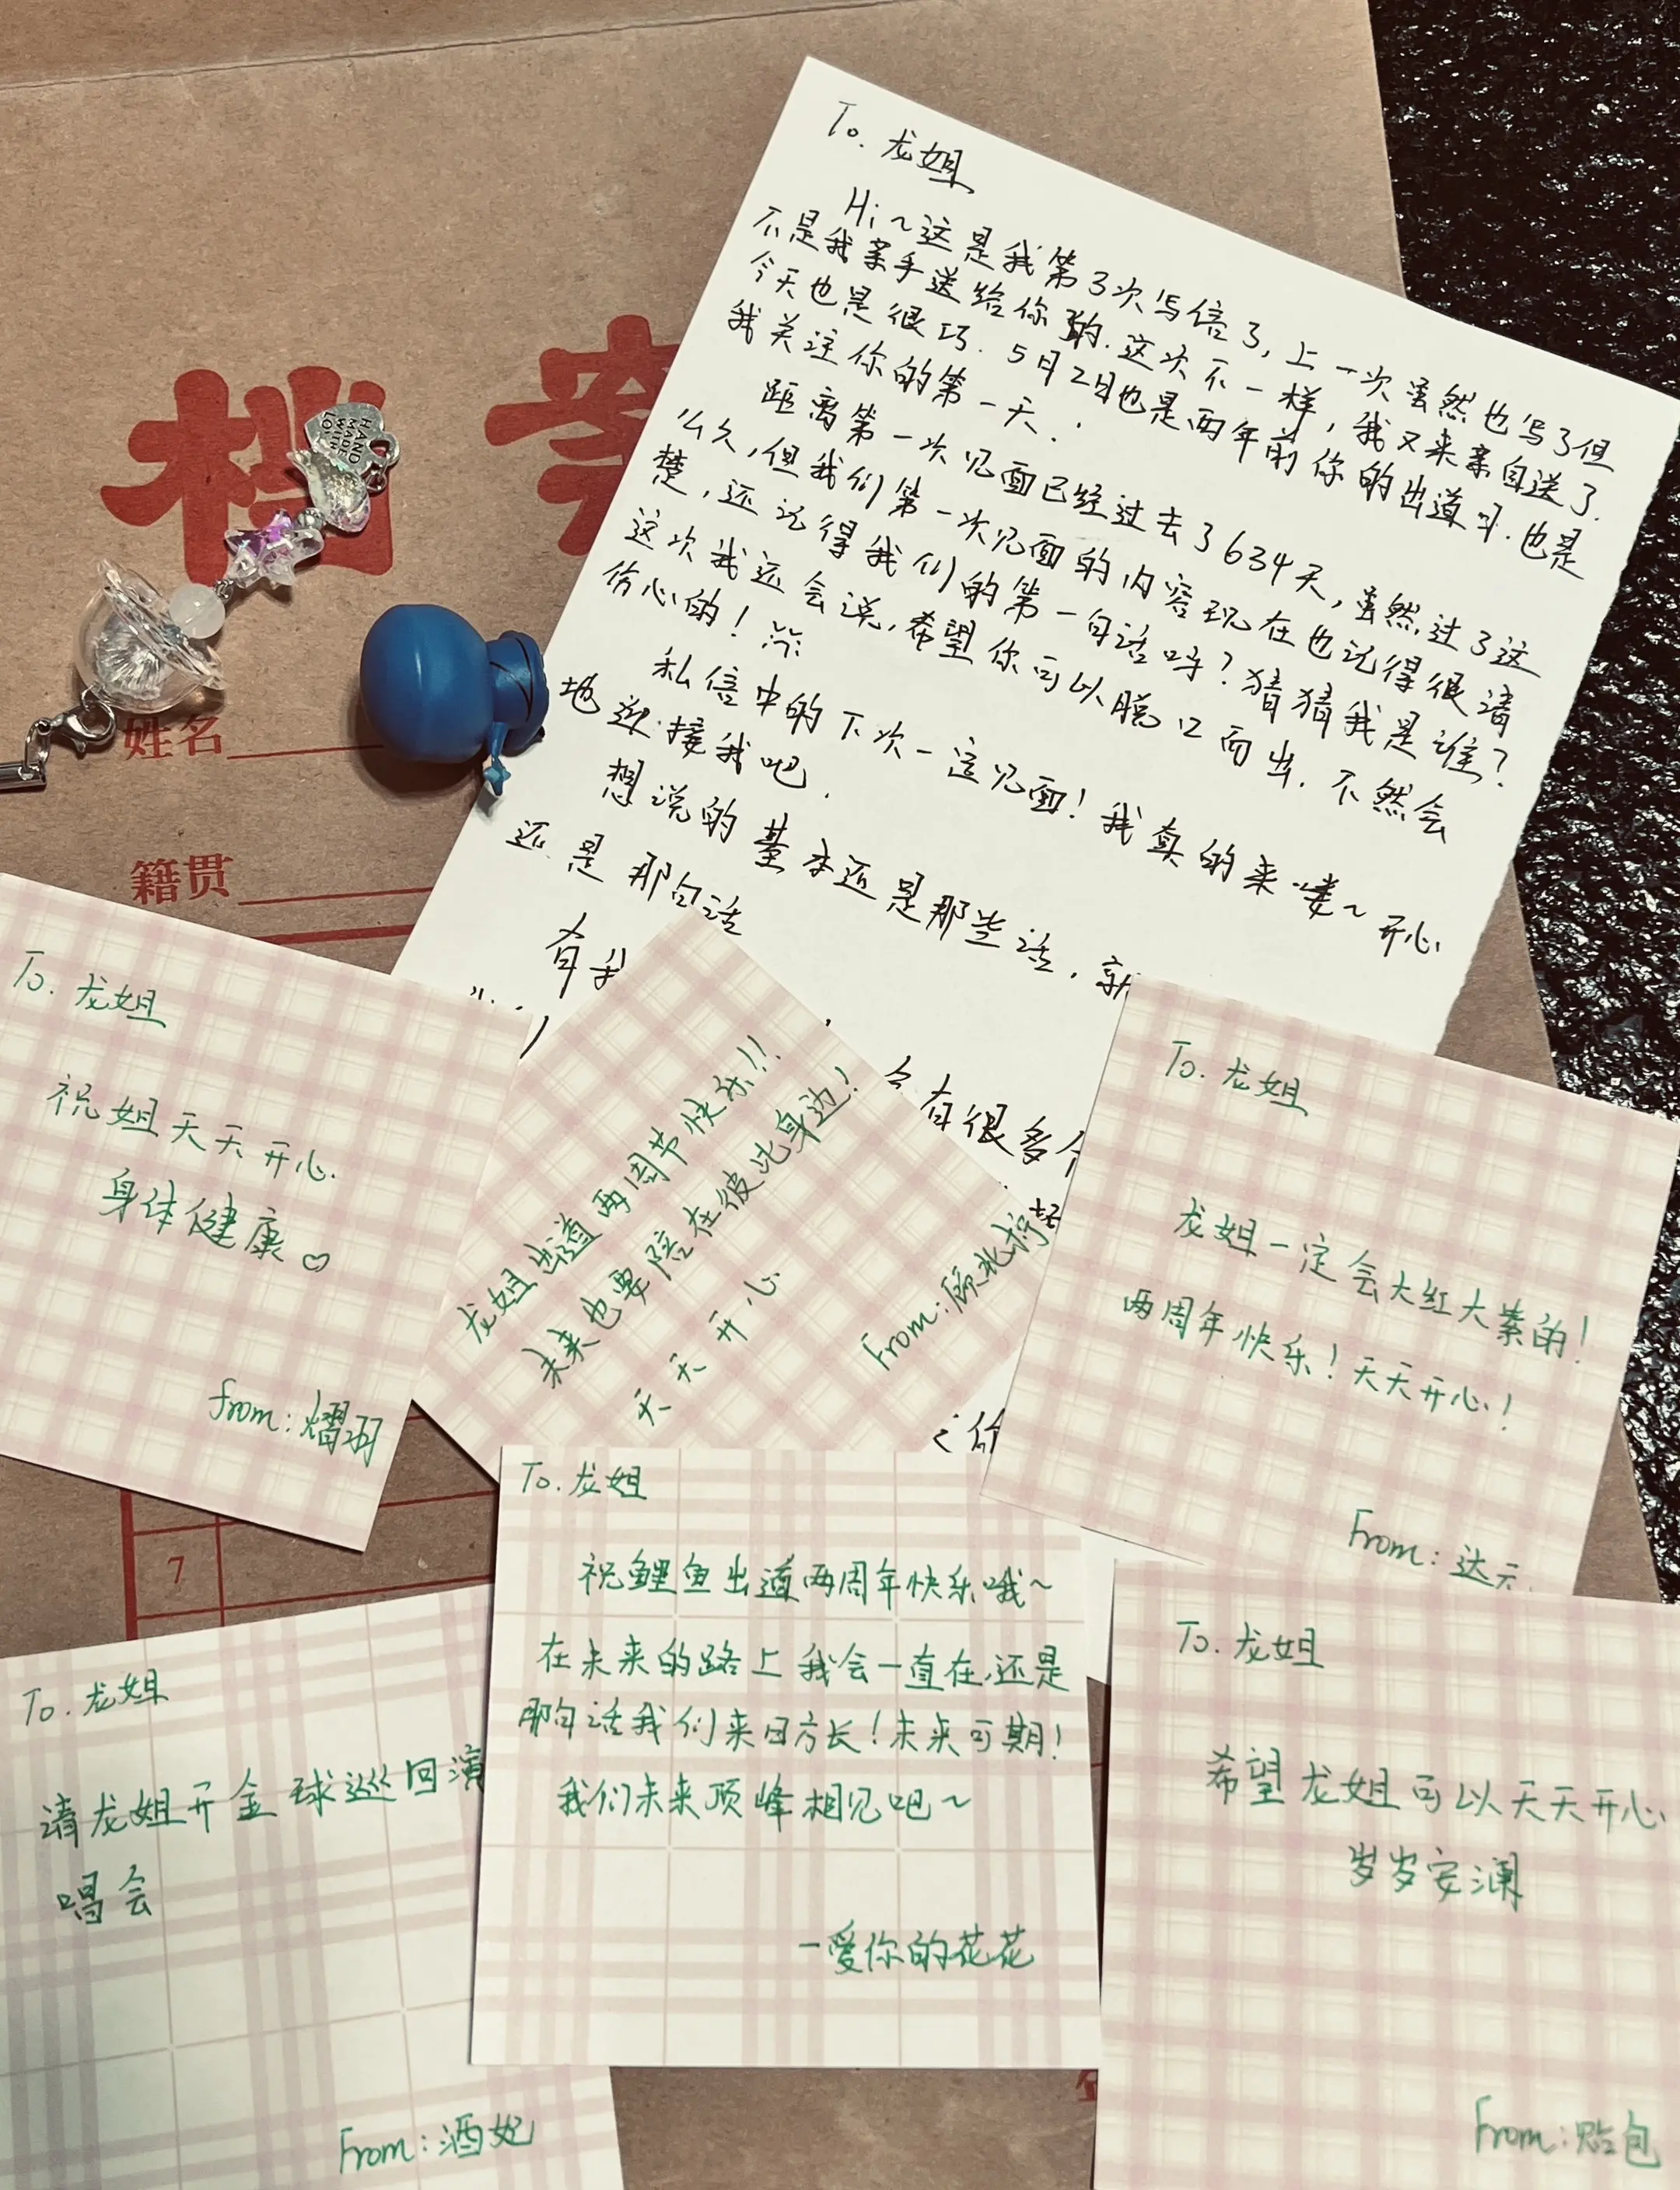 档案
HAND
MADE
WITH
姓名
籍贯
7
To. 龙姐
Hi~这是我第3次写信了，上一次虽然也写了但
不是我亲手送给你的.这次不一样，我又来亲自送了.
今天也是很巧.5月2日也是两年前你的出道日.也是
我关注你的第一天.
距离第一次见面已经过去了634天，虽然过了这
么久，但我们第一次见面的内容现在也记得很清
楚，还记得我们的第一句话吗？猜猜我是谁？
这次我还会说，希望你可以脱口而出.不然会
伤心的！
私信中的下次一定见面！我真的来喽~开心
地迎接我吧.
想说的基本还是那些话，
还是那句话
有很多
To. 龙姐
祝姐天天开心.
身体健康♡
from:熠羽
龙姐出道两周节快乐!!
未来也要陪在彼此身边!
天天开心
From:顾北柠
To. 龙姐
龙姐一定会大红大紫的!
两周年快乐!天天开心!
From:达示
To. 龙姐
祝鲤鱼出道两周年快乐哦~
在未来的路上我会一直在,还是
那句话我们来日方长!未来可期!
我们未来顶峰相见吧~
—爱你的花花
To. 龙姐
请龙姐开全球巡回演
唱会
From:酒妃
To. 龙姐
希望龙姐可以天天开心
岁岁安澜
From:贻包